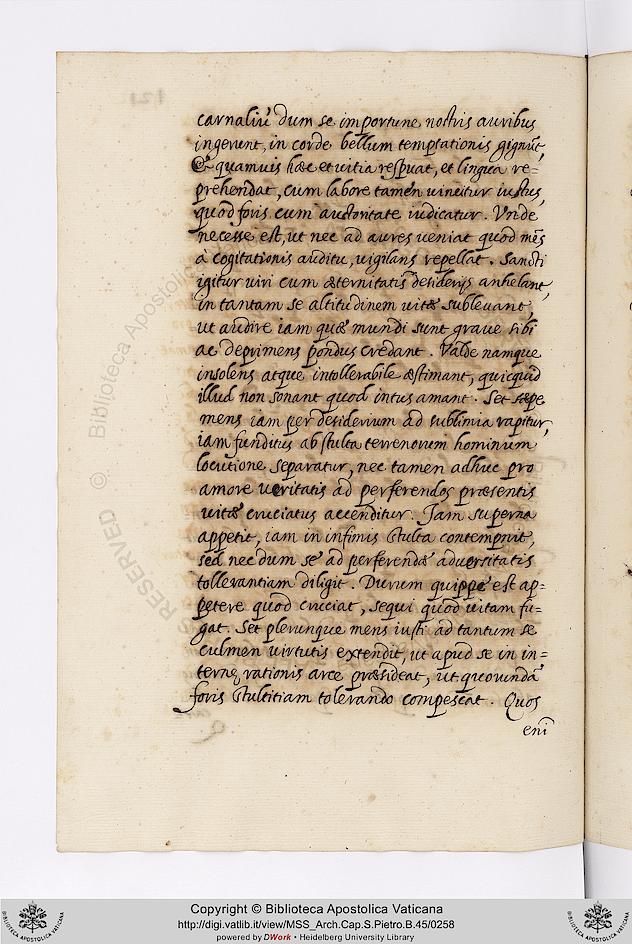 carnaliũ dum se importune nostris auribus
ingerunt, in corde bellum temptationis gignũt,
& quamuis hæc et uitia respuat, et lingua re=
prehendat, cum labore tamen uincitur iustus,
quod foris cum auctoritate iudicatur. Vnde
necesse est, ut nec ad aures ueniat quod mẽs
a cogitationis auditu, uigilans repellat. Sancti
igitur uiri cum æternitatis desiderijs anhelant,
in tantam se altitudinem uitæ subleuant,
ut audire iam quæ mundi sunt graue sibi
ac deprimens pondus credant. Valde namque
insolens atque intollerabile æstimant, quicquid
illud non sonant quod intus amant. Set sæpe
mens iam per desiderium ad sublimia rapitur,
iam funditus ab stulta terrenorum hominum
locutione separatur, nec tamen adhuc pro
amore ueritatis ad perferendos præsentis
uitæ cruciatus accenditur. Iam superna
appetit, iam in infimis stulta contempnit,
sed nec dum se ad perferendæ aduersitatis
tollerantiam diligit. Durum quippe est ap=
petere quod cruciat, sequi quod uitam fu=
gat. Set plerunque mens iusti ad tantum se
culmen uirtutis extendit, ut apud se in in=
terne rationis arce præsideat, ut quorundã
foris stultitiam tolerando compescat. Quos
enĩ
RESERVED © Biblioteca Apostolica
Copyright © Biblioteca Apostolica Vaticana
http://digi.vatlib.it/view/MSS_Arch.Cap.S.Pietro.B.45/0258
powered by DWork • Heidelberg University Library
BIBLIOTECA APOSTOLICA VATICANA
BIBLIOTECA APOSTOLICA VATICANA